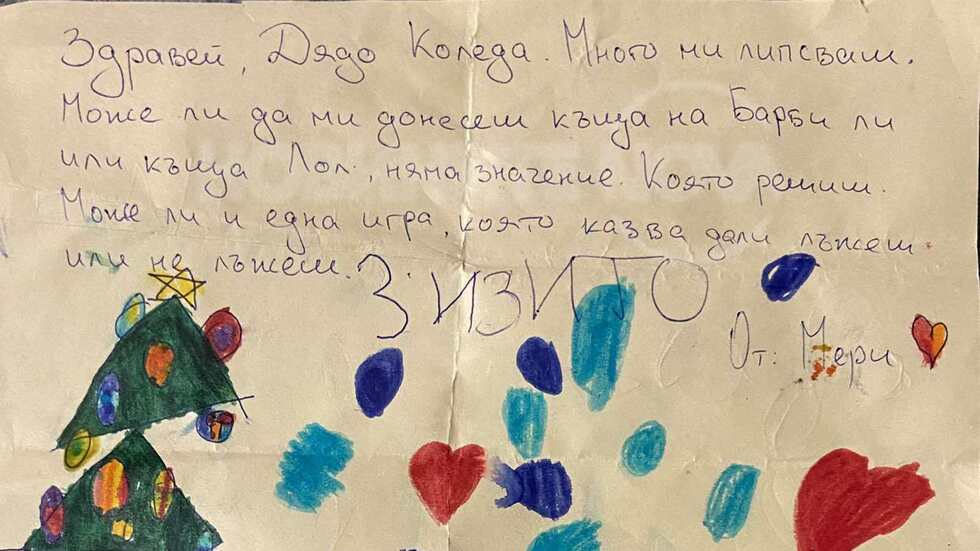 Здравей, Дядо Коледа. Много ми липсваш.
Може ли да ми донесеш къща на Барби ли
или къща Лол, няма значение. Която решиш.
Може ли и една игра, която казва дали лъжеш
или не лъжеш.
ЗИЗИТО
От: Мери